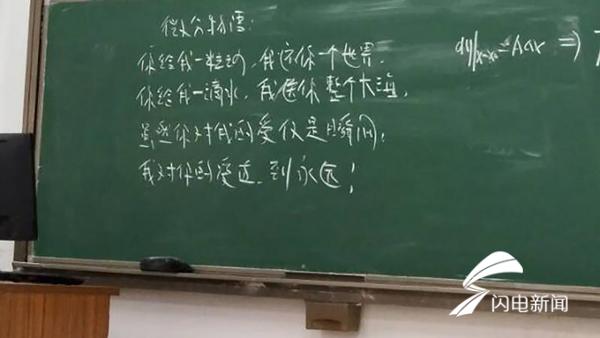 微分物语:
你给我一粒沙,我送你一个世界,
你给我一滴水,我送你整个大海,
虽然你对我的爱仅是瞬间,
我对你的爱直到永远!
dy|x=x₀=AΔx ⇒
闪电新闻